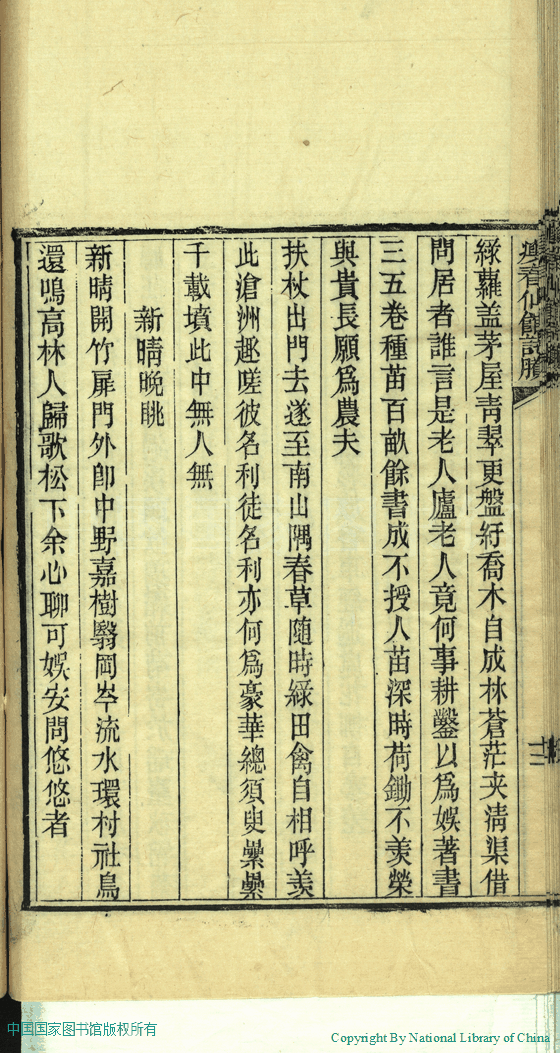 綠蘿蓋茅屋靑翠更盤紆喬木自成林蒼茫夾淸渠借
問居者誰言是老人廬老人竟何事耕鑿以爲娛著書
三五卷種苗百畝餘書成不授人苗深時荷鋤不羨榮
與貴長願爲農夫
扶杖出門去遂至南山隅春草隨時綠田禽自相呼羨
此滄洲趣嗟彼名利徒名利亦何爲豪華總須臾纍纍
千載墳此中無人無
新晴晚眺
新晴開竹扉門外卽中野嘉樹翳岡岑流水環村社鳥
還鳴高林人歸歌松下余心聊可娛安問悠悠者
中国国家图书馆版权所有
Copyright By National Library of China